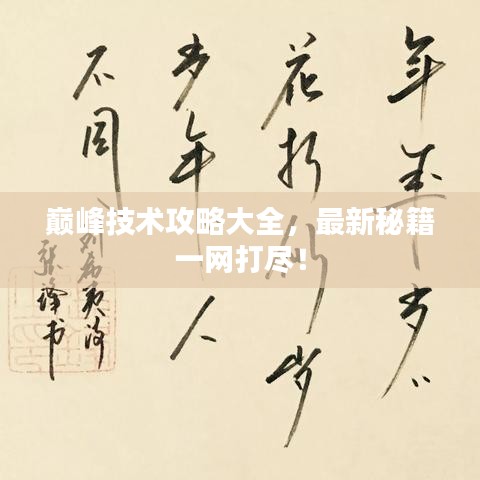 巅峰技术攻略大全，最新秘籍
一网打尽！
年年岁々
花相似岁
岁年人
不同
刘希夷诗
书